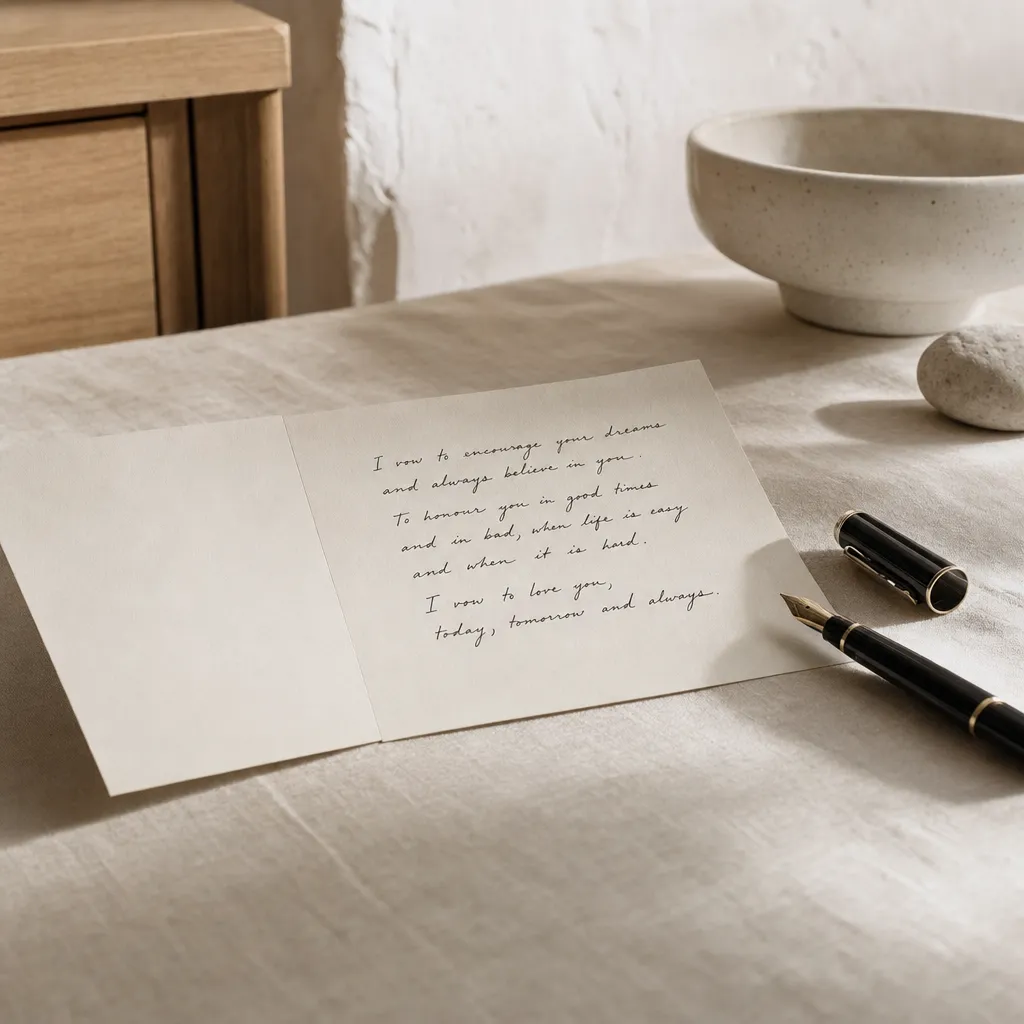 I vow to encourage your dreams
and always believe in you.
To honour you in good times
and in bad, when life is easy
and when it is hard.
I vow to love you,
today, tomorrow and always.